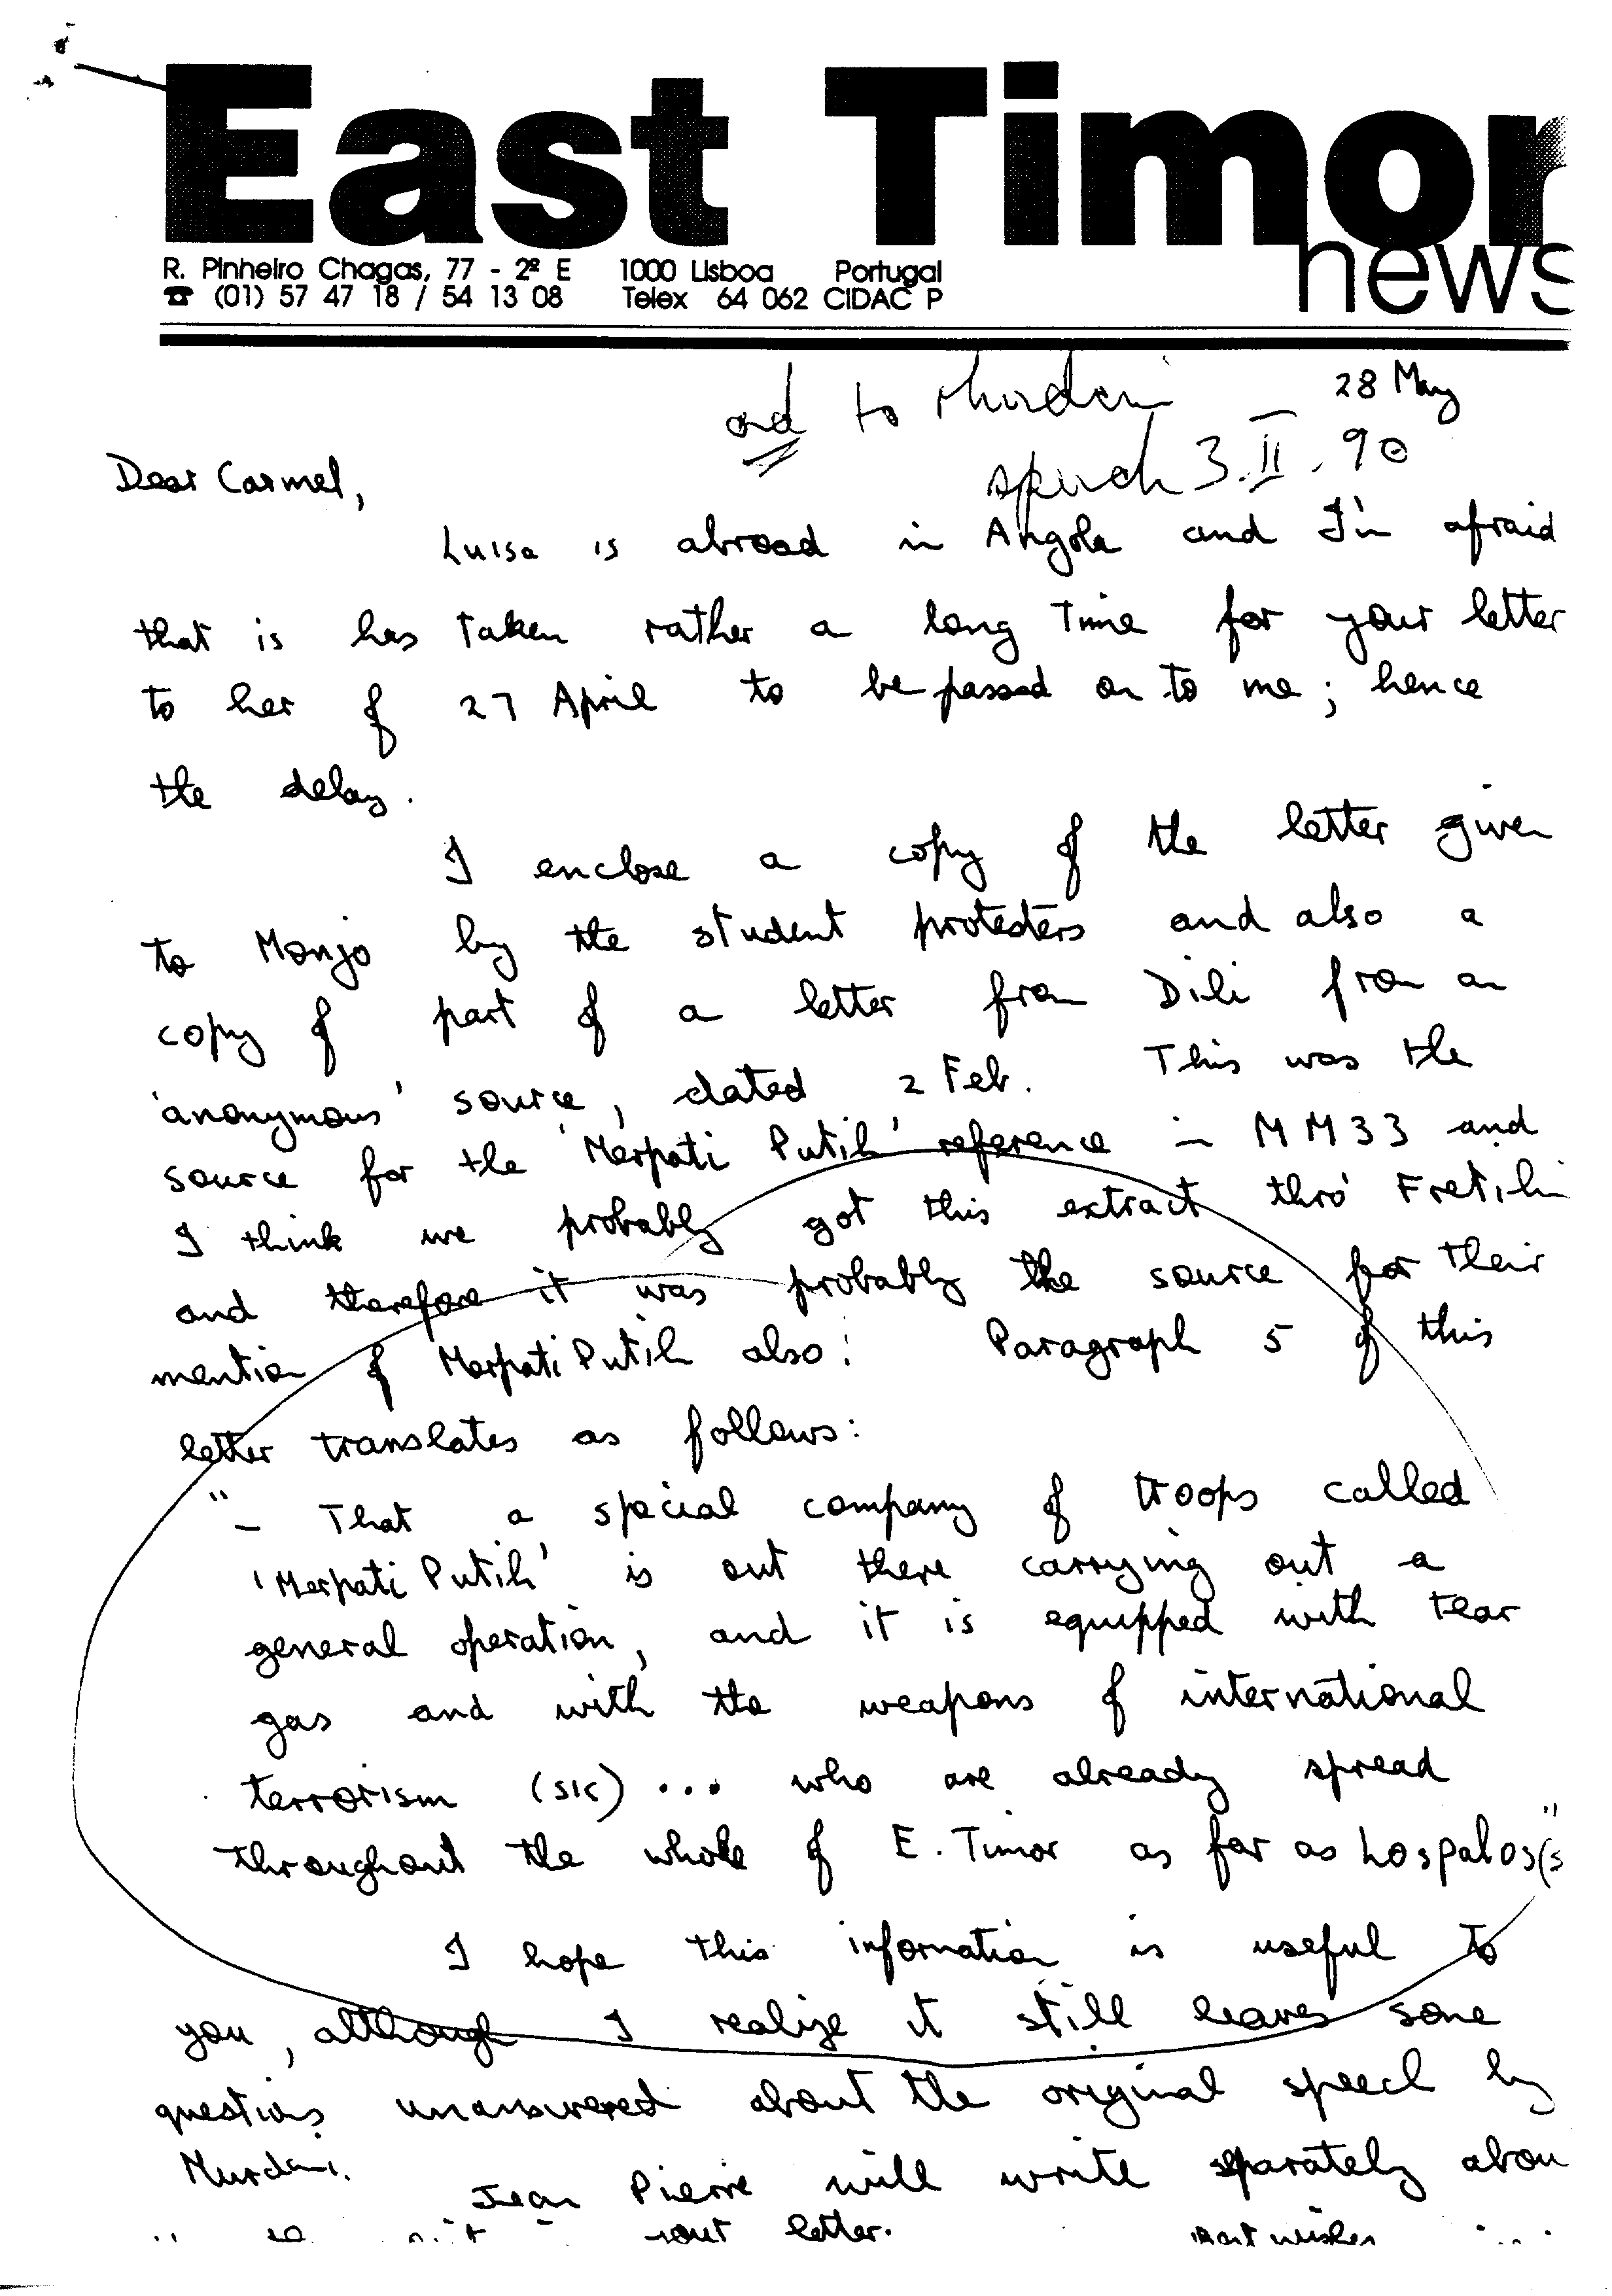 East Timor
news
R. Pinheiro Chagas, 77 - 2º E 1000 Lisboa Portugal
☎ (01) 57 47 18 / 54 13 08 Telex 64 062 CIDAC P
28 May
to Murdani
speech 3.II.90
Dear Carmel,
Luisa is abroad in Angola and I'm afraid
that is has taken rather a long time for your letter
to her of 27 April to be passed on to me; hence
the delay.
I enclose a copy of the letter given
to Monjo by the student protesters and also a
copy of part of a letter from Dili from an
'anonymous' source, dated 2 Feb. This was the
source for the 'Merpati Putih' reference in MM33 and
I think we probably got this extract thro' Fretilin
and therefore it was probably the source for their
mention of Merpati Putih also! Paragraph 5 of this
letter translates as follows:
"- That a special company of troops called
'Merpati Putih' is out there carrying out a
general operation, and it is equipped with tear
gas and with the weapons of international
terrorism (sic) ... who are already spread
throughout the whole of E. Timor as far as Lospalos(s"
I hope this information is useful to
you, although I realize it still leaves some
questions unanswered about the original speech by
Murdani.
Jean Pierre will write separately abou
letter. Best wishes